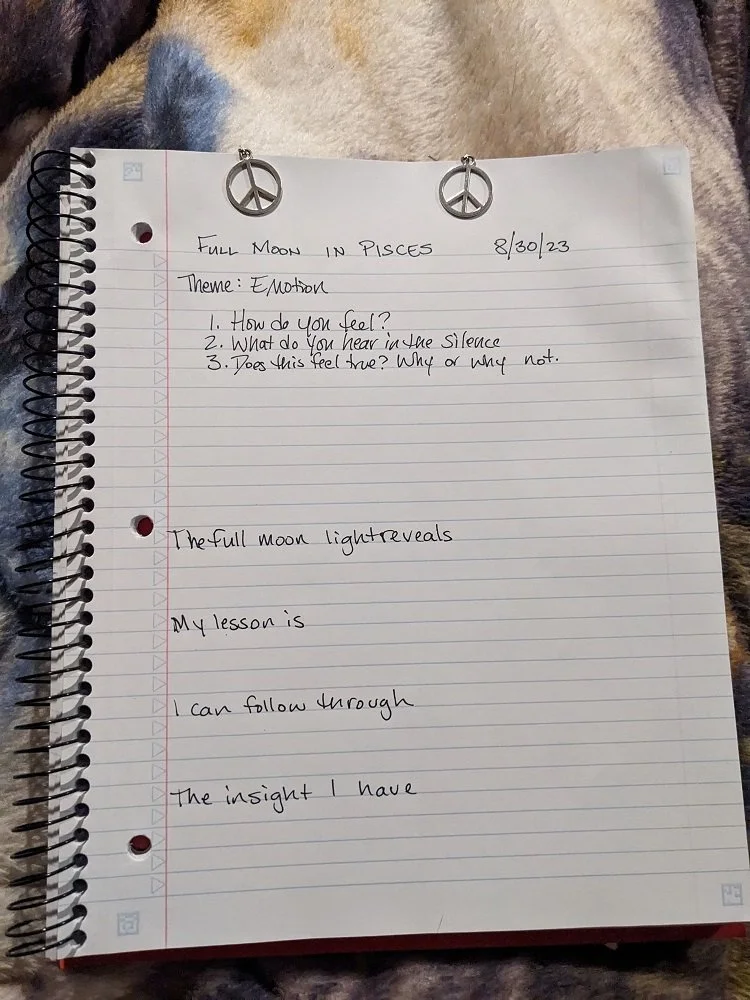 FULL MOON IN PISCES 8/30/23
Theme: Emotion
1. How do you feel?
2. What do you hear in the silence
3. Does this feel true? Why or why not.
The full moon light reveals
My lesson is
I can follow through
The insight I have